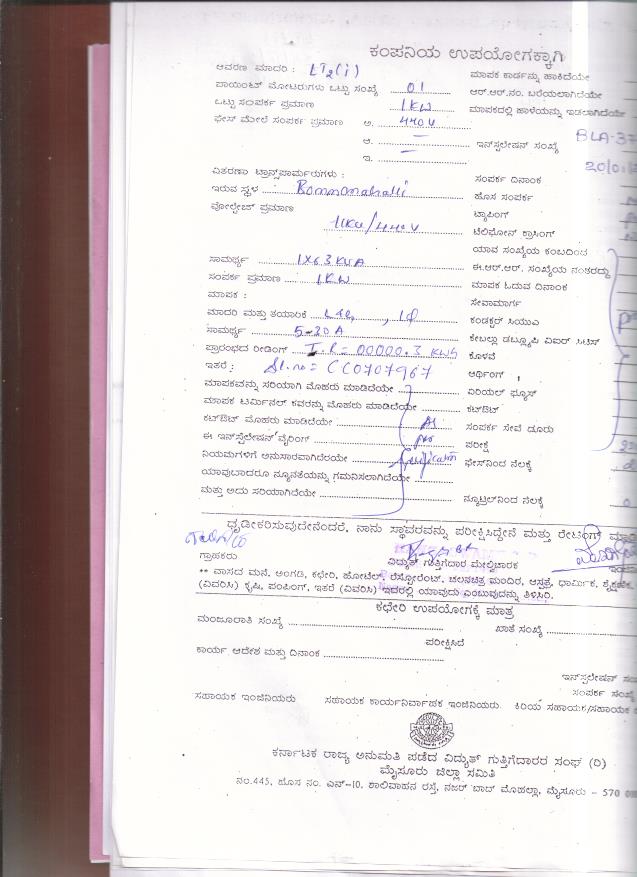 ಕಂಪನಿಯ ಉಪಯೋಗಕ್ಕಾಗಿ
ಆವರಣ ಮಾದರಿ : LT2(i)
ಮಾಪಕ ಕಾರ್ಡನ್ನು ಹಾಕಿದೆಯೇ
ಪಾಯಿಂಟ್ ಮೋಟರುಗಳು ಒಟ್ಟು ಸಂಖ್ಯೆ 01
ಆರ್.ಆರ್.ನಂ. ಬರೆಯಲಾಗಿದೆಯೇ
ಒಟ್ಟು ಸಂಪರ್ಕ ಪ್ರಮಾಣ 1KW
ಮಾಪಕದಲ್ಲಿ ಹಾಳೆಯನ್ನು ಇಡಲಾಗಿದೆಯೇ
ಫೇಸ್ ಮೇಲೆ ಸಂಪರ್ಕ ಪ್ರಮಾಣ ಅ. 440V
ಆ. —
ಇನ್ಸ್ಟಲೇಷನ್ ಸಂಖ್ಯೆ BLA-37
ಇ. —
20/0
ವಿತರಣಾ ಟ್ರಾನ್ಸ್‌ಫಾರ್ಮರುಗಳು :
ಸಂಪರ್ಕ ದಿನಾಂಕ
ಇರುವ ಸ್ಥಳ Bommanahalli
ಹೊಸ ಸಂಪರ್ಕ
ವೋಲ್ಟೇಜ್ ಪ್ರಮಾಣ
ಟ್ಯಾಪಿಂಗ್
11KV/440V
ಟೆಲಿಫೋನ್ ಕ್ರಾಸಿಂಗ್
ಯಾವ ಸಂಖ್ಯೆಯ ಕಂಬದಿಂದ
ಸಾಮರ್ಥ್ಯ 1X63 KVA
ಈ.ಆರ್.ಆರ್. ಸಂಖ್ಯೆಯ ನಂತರದ್ದು
ಸಂಪರ್ಕ ಪ್ರಮಾಣ 1KW
ಮಾಪಕ ಓದುವ ದಿನಾಂಕ
ಮಾಪಕ :
ಸೇವಾಮಾರ್ಗ
ಮಾದರಿ ಮತ್ತು ತಯಾರಿಕೆ L&T, 1Φ
ಕಂಡಕ್ಟರ್ ಸಿಯುಎ
ಸಾಮರ್ಥ್ಯ 5-20 A
ಕೇಬಲ್ಲು ಡಬ್ಲ್ಯೂಪಿ ವಿಐರ್ ಸಿಟಿಸ್
ಪ್ರಾರಂಭದ ರೀಡಿಂಗ್ I.R = 00000.3 KWh
ಕೊಳವೆ
ಇತರೆ : Sl.no = CC0707967
ಆರ್ಥಿಂಗ್
ಮಾಪಕವನ್ನು ಸರಿಯಾಗಿ ಮೊಹರು ಮಾಡಿದೆಯೇ
ಏರಿಯಲ್ ಫ್ಯೂಸ್
ಮಾಪಕ ಟರ್ಮಿನಲ್ ಕವರನ್ನು ಮೊಹರು ಮಾಡಿದೆಯೇ
ಕಟ್‌ಔಟ್
ಕಟ್‌ಔಟ್ ಮೊಹರು ಮಾಡಿದೆಯೇ As
ಸಂಪರ್ಕ ಸೇವೆ ದೂರು
ಈ ಇನ್ಸ್ಟಲೇಷನ್ ವೈರಿಂಗ್ per
ಪರೀಕ್ಷೆ
ನಿಯಮಗಳಿಗೆ ಅನುಸಾರವಾಗಿದೆಯೇ Specification
ಫೇಸ್‌ನಿಂದ ನೆಲಕ್ಕೆ
ಯಾವುದಾದರೂ ನ್ಯೂನತೆಯನ್ನು ಗಮನಿಸಲಾಗಿದೆಯೇ
ಮತ್ತು ಅದು ಸರಿಯಾಗಿದೆಯೇ
ನ್ಯೂಟ್ರಲ್‌ನಿಂದ ನೆಲಕ್ಕೆ
ಧೃಡೀಕರಿಸುವುದೇನೆಂದರೆ, ನಾನು ಸ್ಥಾವರವನ್ನು ಪರೀಕ್ಷಿಸಿದ್ದೇನೆ ಮತ್ತು ರೇಟಿಂಗ್
ಗ್ರಾಹಕರು
ವಿದ್ಯುತ್ ಗುತ್ತಿಗೆದಾರ ಮೇಲ್ವಿಚಾರಕ
** ವಾಸದ ಮನೆ, ಅಂಗಡಿ, ಕಛೇರಿ, ಹೋಟೆಲ್, ರೆಸ್ಟೋರೆಂಟ್, ಚಲನಚಿತ್ರ ಮಂದಿರ, ಆಸ್ಪತ್ರೆ, ಧಾರ್ಮಿಕ,
(ವಿವರಿಸಿ) ಕೃಷಿ, ಪಂಪಿಂಗ್, ಇತರೆ (ವಿವರಿಸಿ) ಇದರಲ್ಲಿ ಯಾವುದು ಎಂಬುವುದನ್ನು ತಿಳಿಸಿರಿ.
ಕಛೇರಿ ಉಪಯೋಗಕ್ಕೆ ಮಾತ್ರ
ಮಂಜೂರಾತಿ ಸಂಖ್ಯೆ
ಖಾತೆ ಸಂಖ್ಯೆ
ಪರೀಕ್ಷಿಸಿದೆ
ಕಾರ್ಯ ಆದೇಶ ಮತ್ತು ದಿನಾಂಕ
ಇನ್ಸ್ಟಲೇಷನ್
ಸಂಪರ್ಕ ಸಂಖ್ಯೆ
ಸಹಾಯಕ ಇಂಜಿನಿಯರು ಸಹಾಯಕ ಕಾರ್ಯನಿರ್ವಾಹಕ ಇಂಜಿನಿಯರು ಕಿರಿಯ ಸಹಾಯಕ/ಸಹಾಯಕ
ಕರ್ನಾಟಕ ರಾಜ್ಯ ಅನುಮತಿ ಪಡೆದ ವಿದ್ಯುತ್ ಗುತ್ತಿಗೆದಾರರ ಸಂಘ (ರಿ)
ಮೈಸೂರು ಜಿಲ್ಲಾ ಸಮಿತಿ
ನಂ.445, ಹೊಸ ನಂ. ಎನ್-10, ಶಾಲಿವಾಹನ ರಸ್ತೆ, ನಜರ್ ಬಾದ್ ಮೊಹಲ್ಲಾ, ಮೈಸೂರು - 570